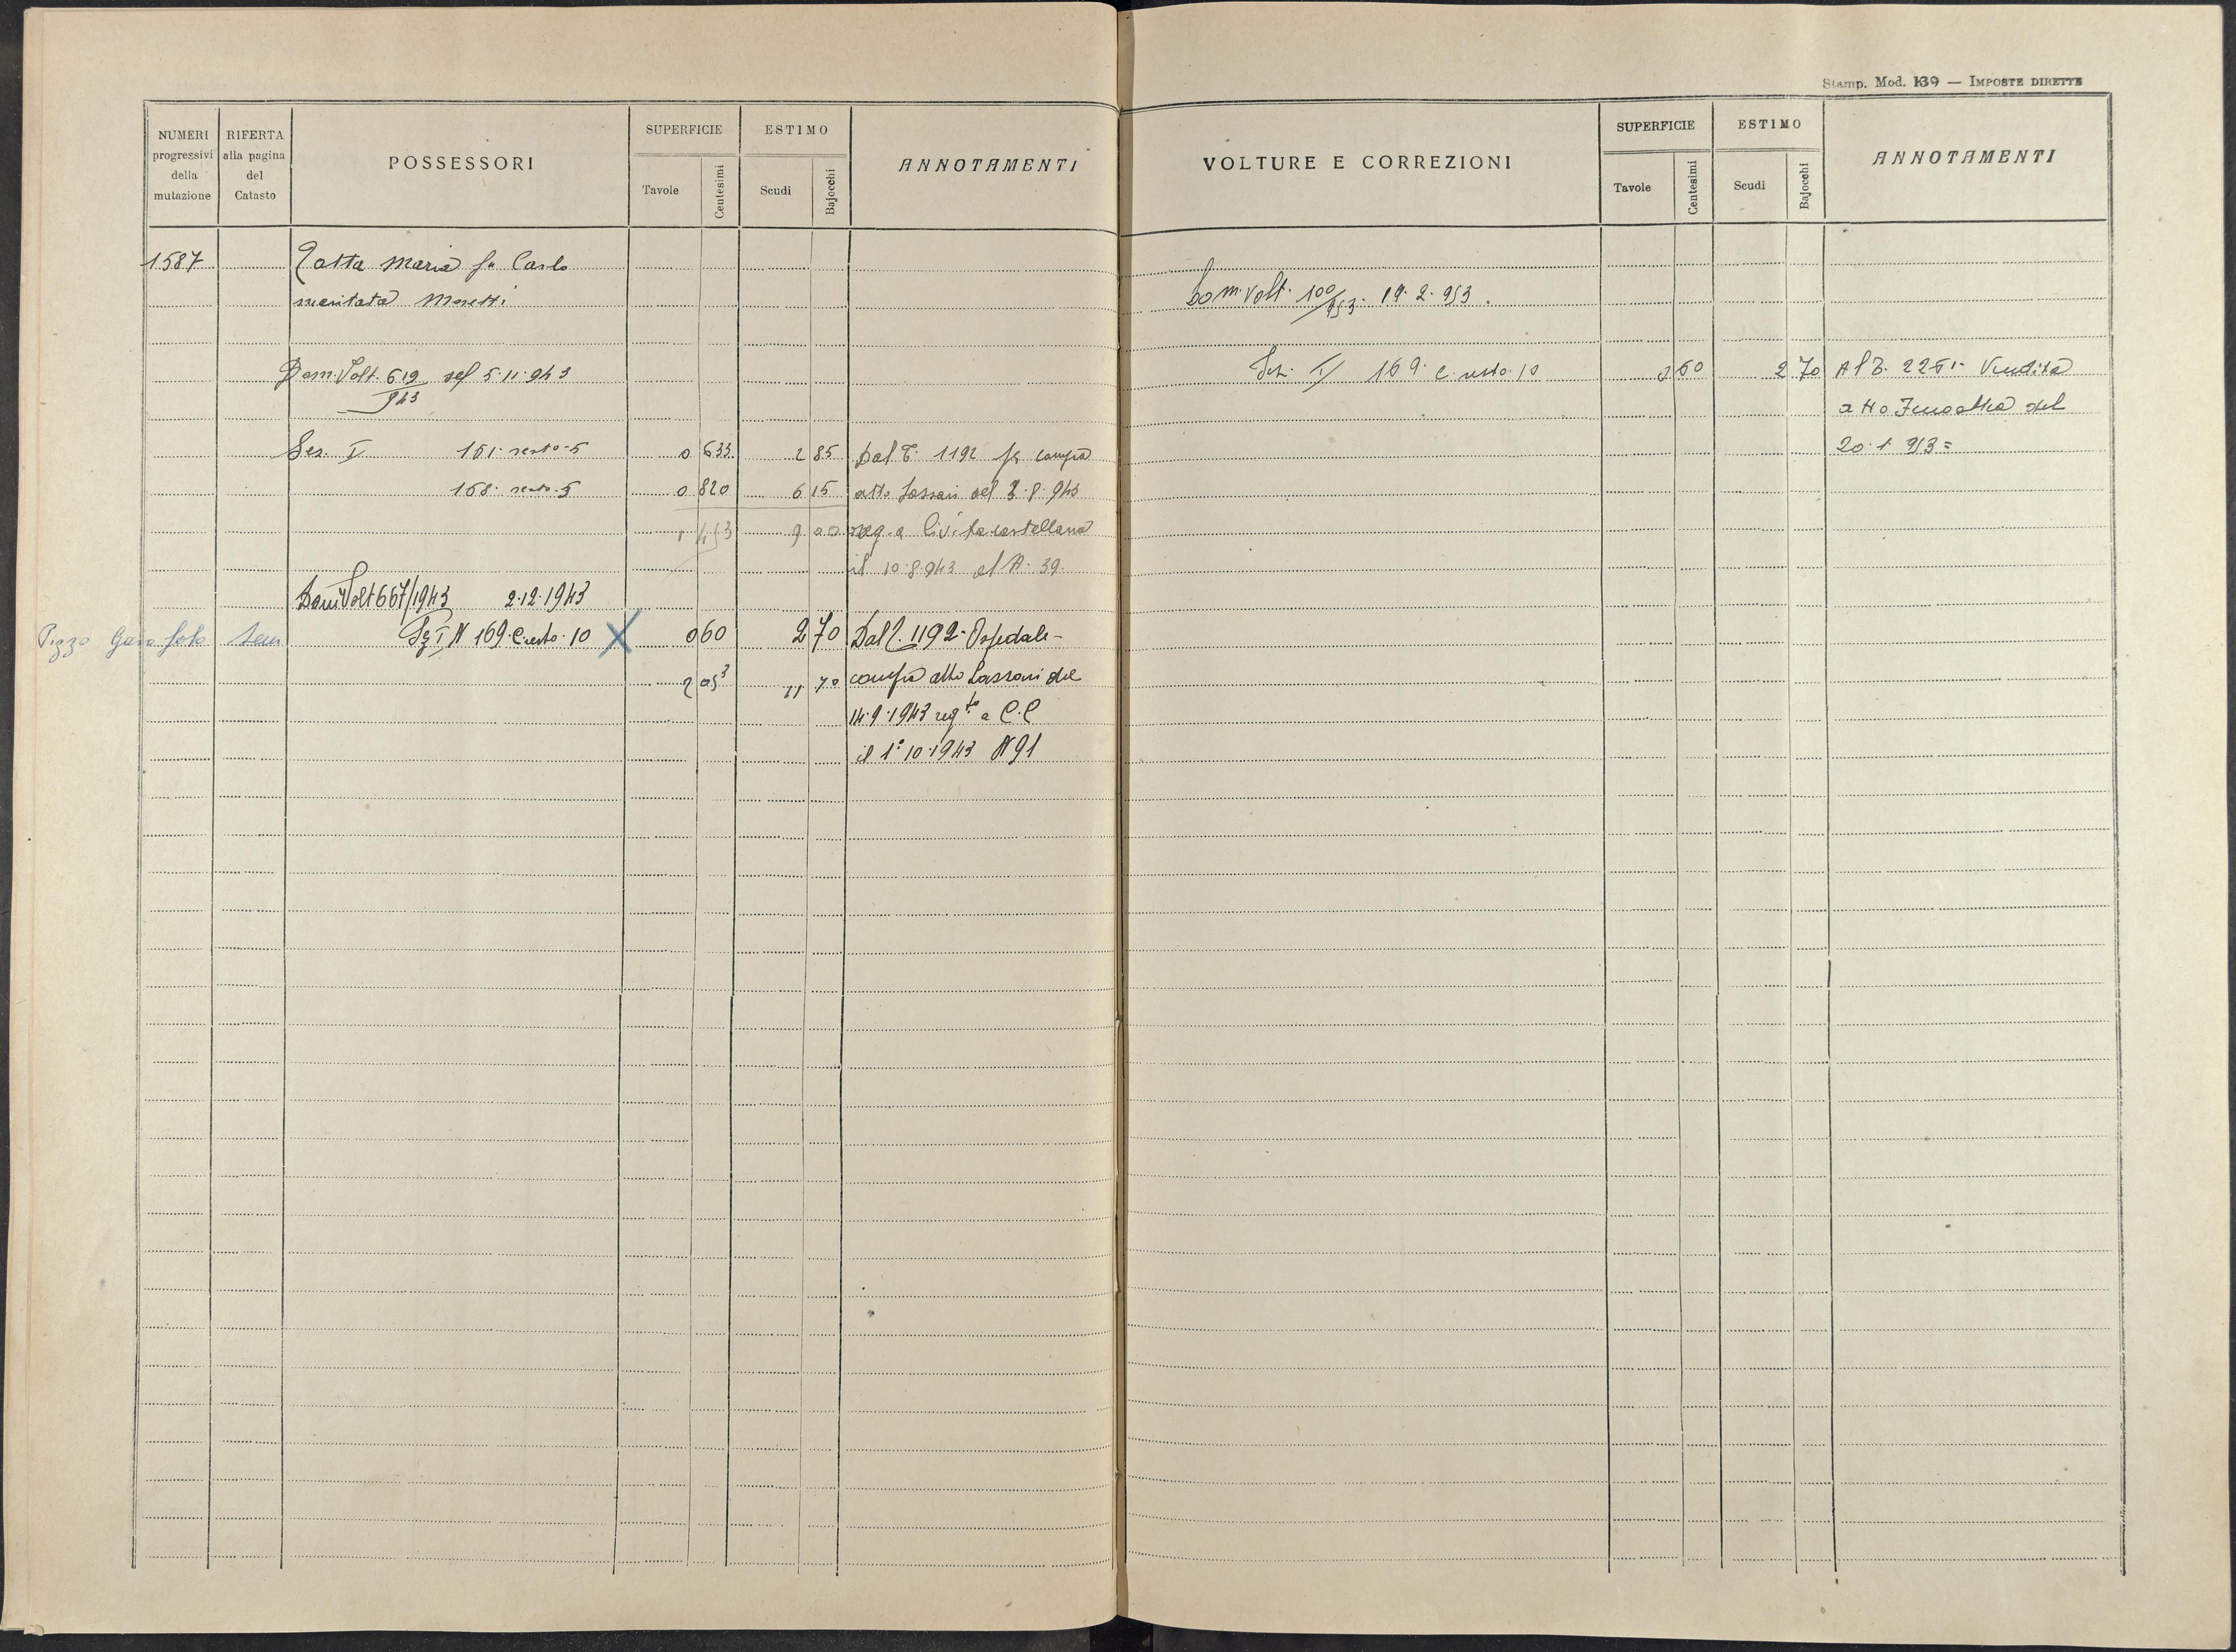 Stamp. Mod. 139 — IMPOSTE DIRETTE
NUMERI progressivi della mutazione
RIFERTA alla pagina del Catasto
POSSESSORI
SUPERFICIE
Tavole
Centesimi
ESTIMO
Scudi
Bajocchi
ANNOTAMENTI
1587 Ratta Maria fu Carlo
maritata Moretti
Dom. Volt. 619/943 del 5.11.943
Sez. I 151. resto-5 0 633 2 85 Dal T. 1192 per compra
158. resto-5 0 820 6 15 atto Lazzari del 3.8.943
1 453 9 00 reg. a Civitacastellana
il 10.8.943 al N. 39.
Dom Volt 667/1943 2.12.1943
Pizzo Garofolo Sem Sez I N 169. C resto. 10 X 0 60 2 70 Dal T. 1192- Ospedale-
2 053 11 70 compra atto Lazzari del
14.9.1943 regto a C.C
il 1° 10.1943 N 91
VOLTURE E CORREZIONI
SUPERFICIE
Tavole
Centesimi
ESTIMO
Scudi
Bajocchi
ANNOTAMENTI
Dom. Volt. 100/953. 19.2.953.
Sez. I 169. C resto. 10 0 60 2 70 Al T. Vendita
atto del
20.1.953=